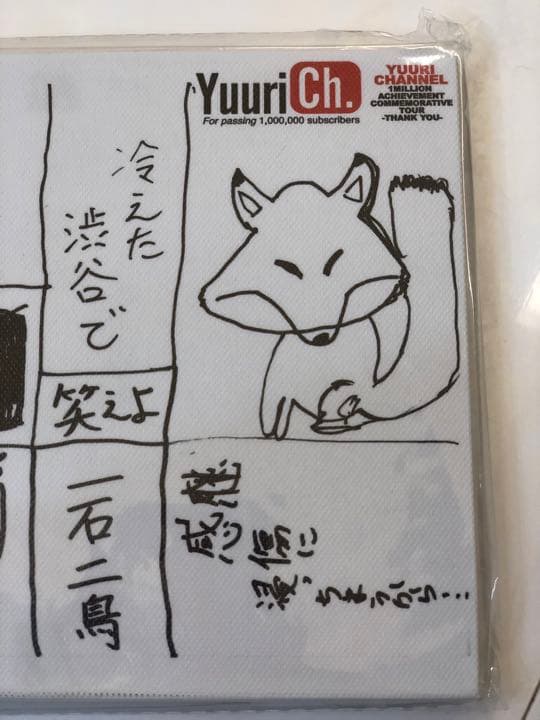 YuuriCh.
For passing 1,000,000 subscribers
YUURI
CHANNEL
1MILLION
ACHIEVEMENT
COMMEMORATIVE
TOUR
-THANK YOU-
冷えた
渋谷で
笑えよ
一石二鳥
感傷に
浸っちまうから…